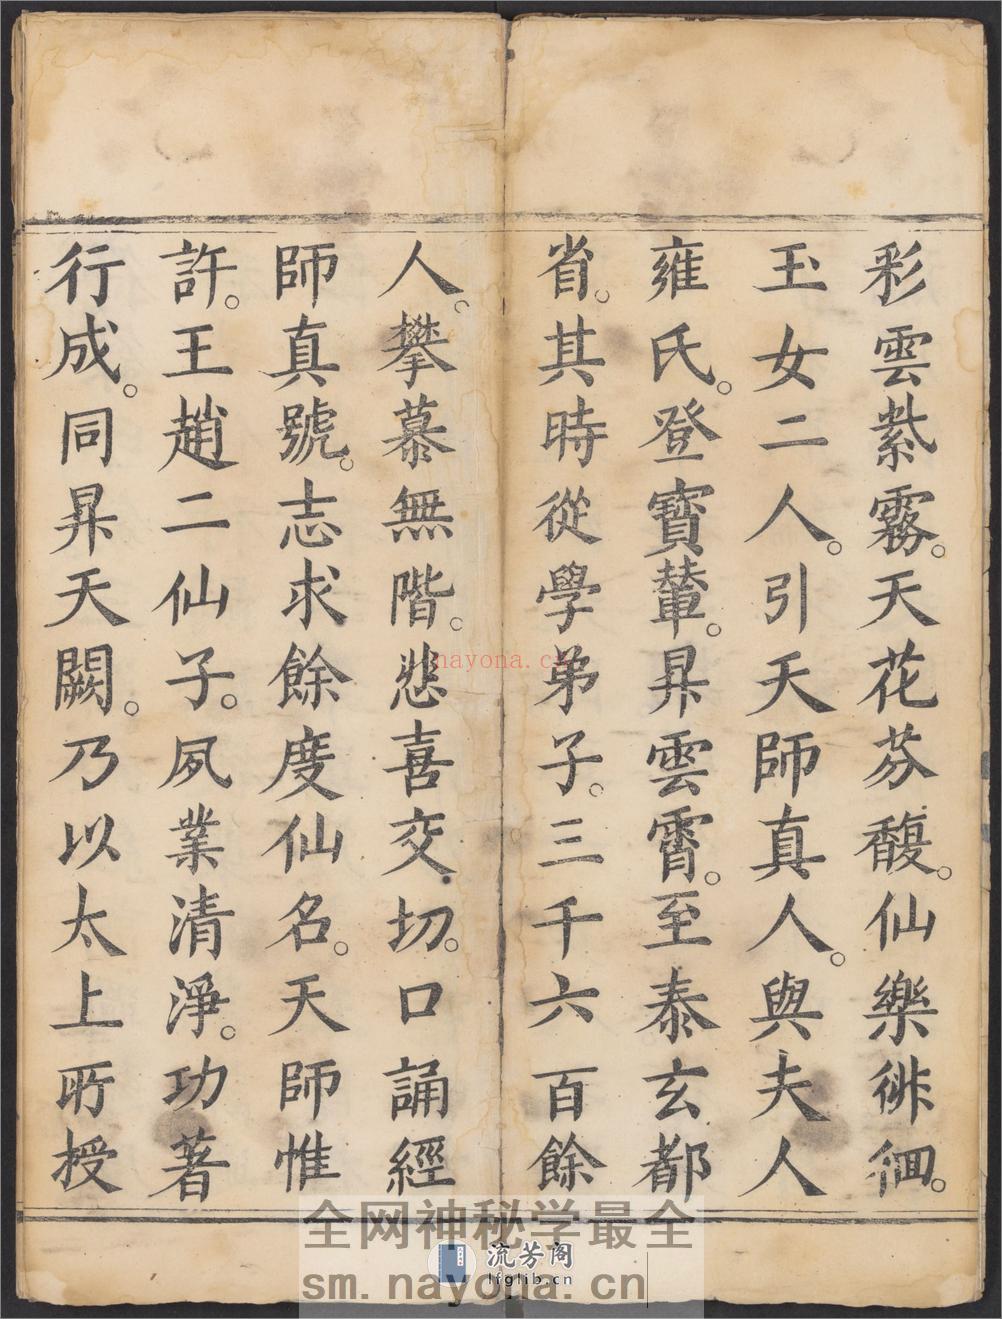 彩雲紫霧。天花芬馥。仙樂徘徊。
玉女二人。引天師真人。與夫人
雍氏。登寶輦。昇雲霄。至泰玄都
省。其時從學弟子。三千六百餘
人。攀慕無階。悲喜交切。口誦經
師真號。志求餘度仙名。天師惟
許。王趙二仙子。夙業清淨。功著
行成。同昇天闕。乃以太上所授
nayona.cn
全网神秘学最全
流芳阁
lfglib.cn
sm.nayona.cn